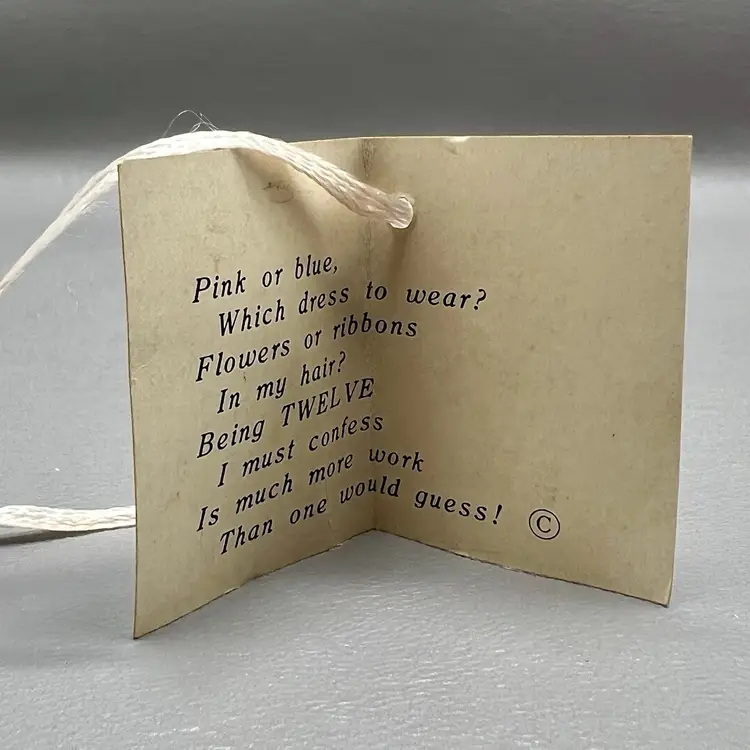 Pink or blue,
Which dress to wear?
Flowers or ribbons
In my hair?
Being TWELVE
I must confess
Is much more work
Than one would guess! ©